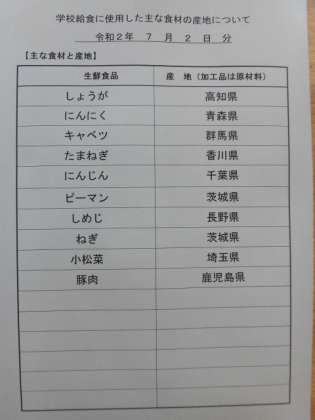 学校給食に使用した主な食材の産地について
令和2年 7 月 2 日 分
【主な食材と産地】
生鮮食品 産 地（加工品は原材料）
しょうが 高知県
にんにく 青森県
キャベツ 群馬県
たまねぎ 香川県
にんじん 千葉県
ピーマン 茨城県
しめじ 長野県
ねぎ 茨城県
小松菜 埼玉県
豚肉 鹿児島県